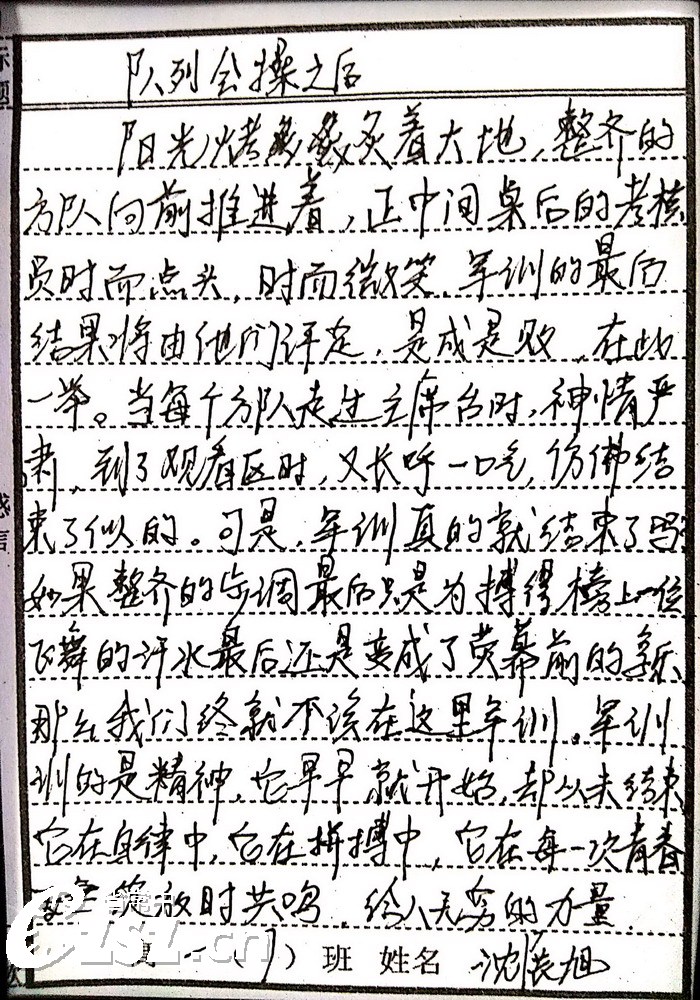 队列会操之后
阳光烤炙着大地，整齐的
方队向前推进着，正中间桌后的考核
员时而点头，时而微笑，军训的最后
结果将由他们评定，是成是败，在此
一举。当每个方队走过主席台时，神情严
肃，到了观看区时，又长呼一口气，仿佛结
束了似的。可是，军训真的就结束了吗？
如果整齐的步调最后只是为搏得榜上一位
飞舞的汗水最后还是变成了荧幕前的享乐
那么我们终就不该在这里军训。军训
训的是精神，它早早就开始，却从未结束
它在自律中，它在拼搏中，它在每一次青春
绽放时共鸣，给人无穷的力量
（7）班 姓名 沈宸旭
标题
感言